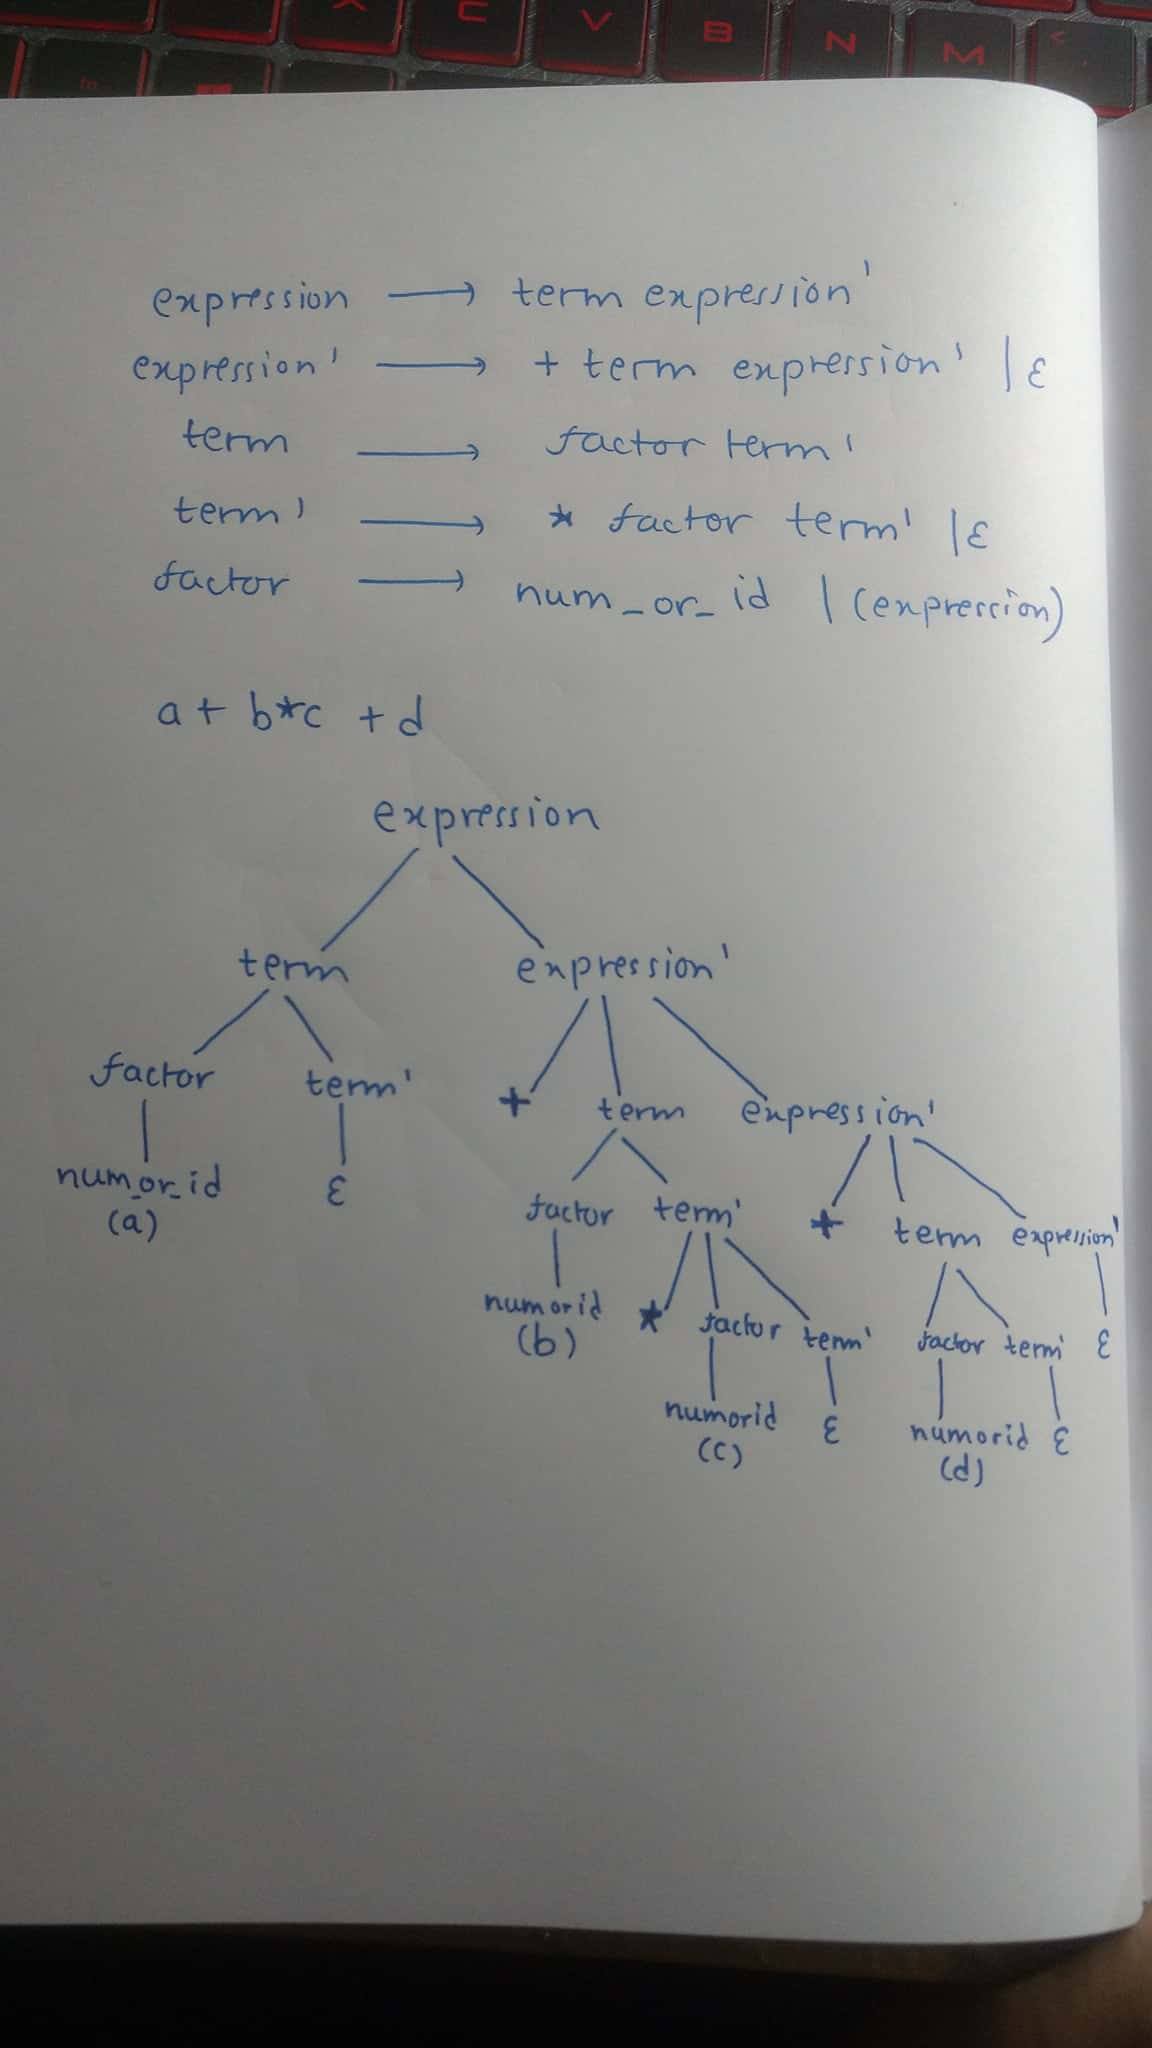 C V B N M <
expression → term expression'
expression' → + term expression' | ε
term → factor term'
term' → * factor term' | ε
factor → num_or_id | (expression)
a + b*c + d
expression
term expression'
factor term' + term expression'
num_or_id ε factor term' + term expression'
(a)
numorid * factor term' factor term' ε
(b)
numorid ε numorid ε
(c) (d)